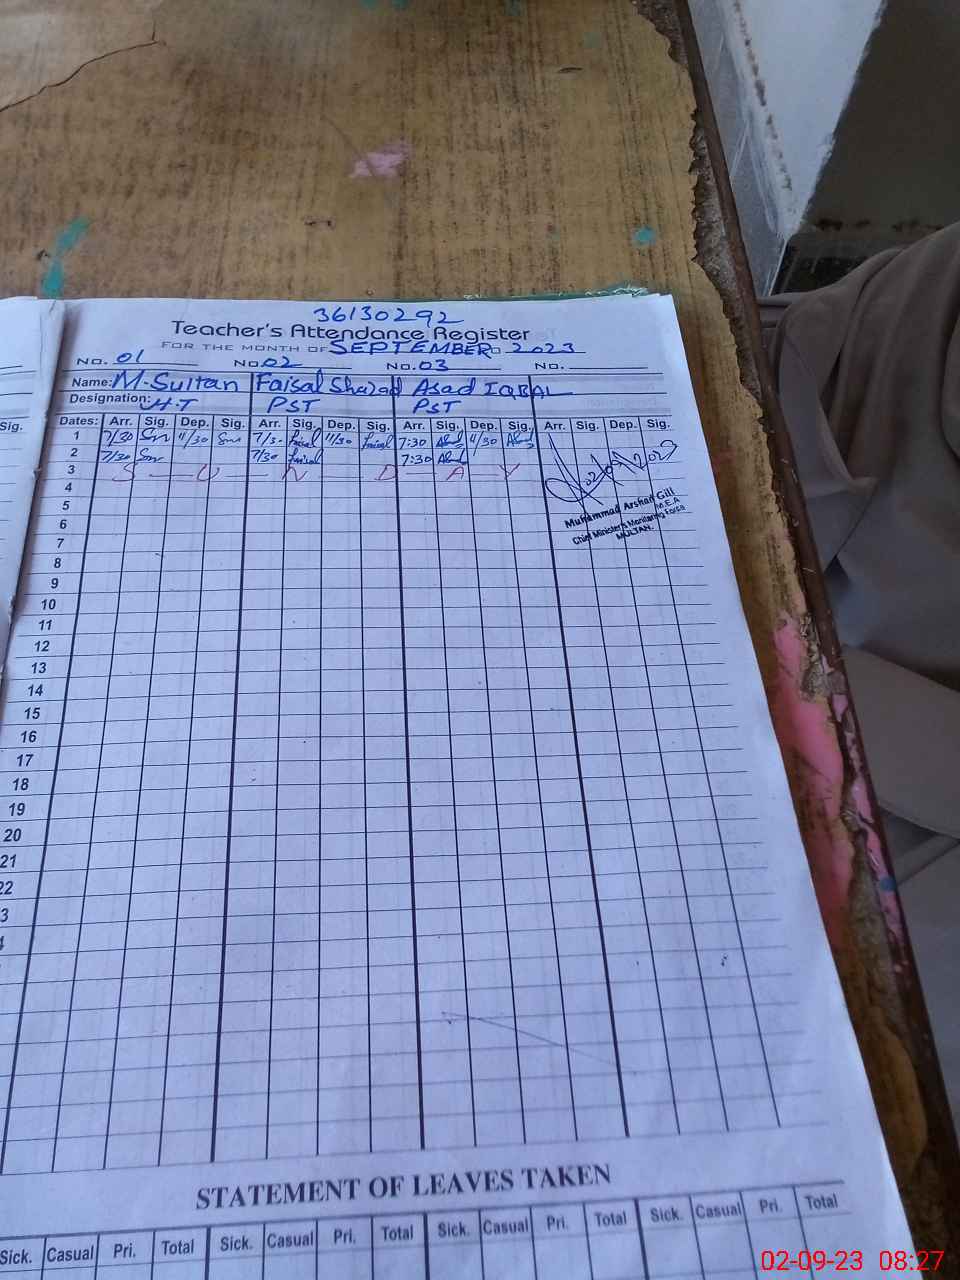 36130292
Teacher's Attendance Register
FOR THE MONTH OF SEPTEMBER 2023
No. 01 No. 02 No. 03 No.
Name: M. Sultan Faisal Shazad Asad IQBAL
Designation: H.T PST PST
Sig. Dates: Arr. Sig. Dep. Sig. Arr. Sig. Dep. Sig. Arr. Sig. Dep. Sig. Arr. Sig. Dep. Sig.
1 7/30 11/30 7/30 Faisal 11/30 Faisal 7:30 11/30
2 7/30 7/30 Faisal 7:30
3 S U N D A Y
4
5
6
7
8
9
10
11
12
13
14
15
16
17
18
19
20
21
22
3
Muhammad Arshad Gill
M.E.A
Chief Minister's Monitoring Force
MULTAN.
STATEMENT OF LEAVES TAKEN
Sick. Casual Pri. Total Sick. Casual Pri. Total Sick. Casual Pri. Total Sick. Casual Pri. Total
02-09-23 08:27